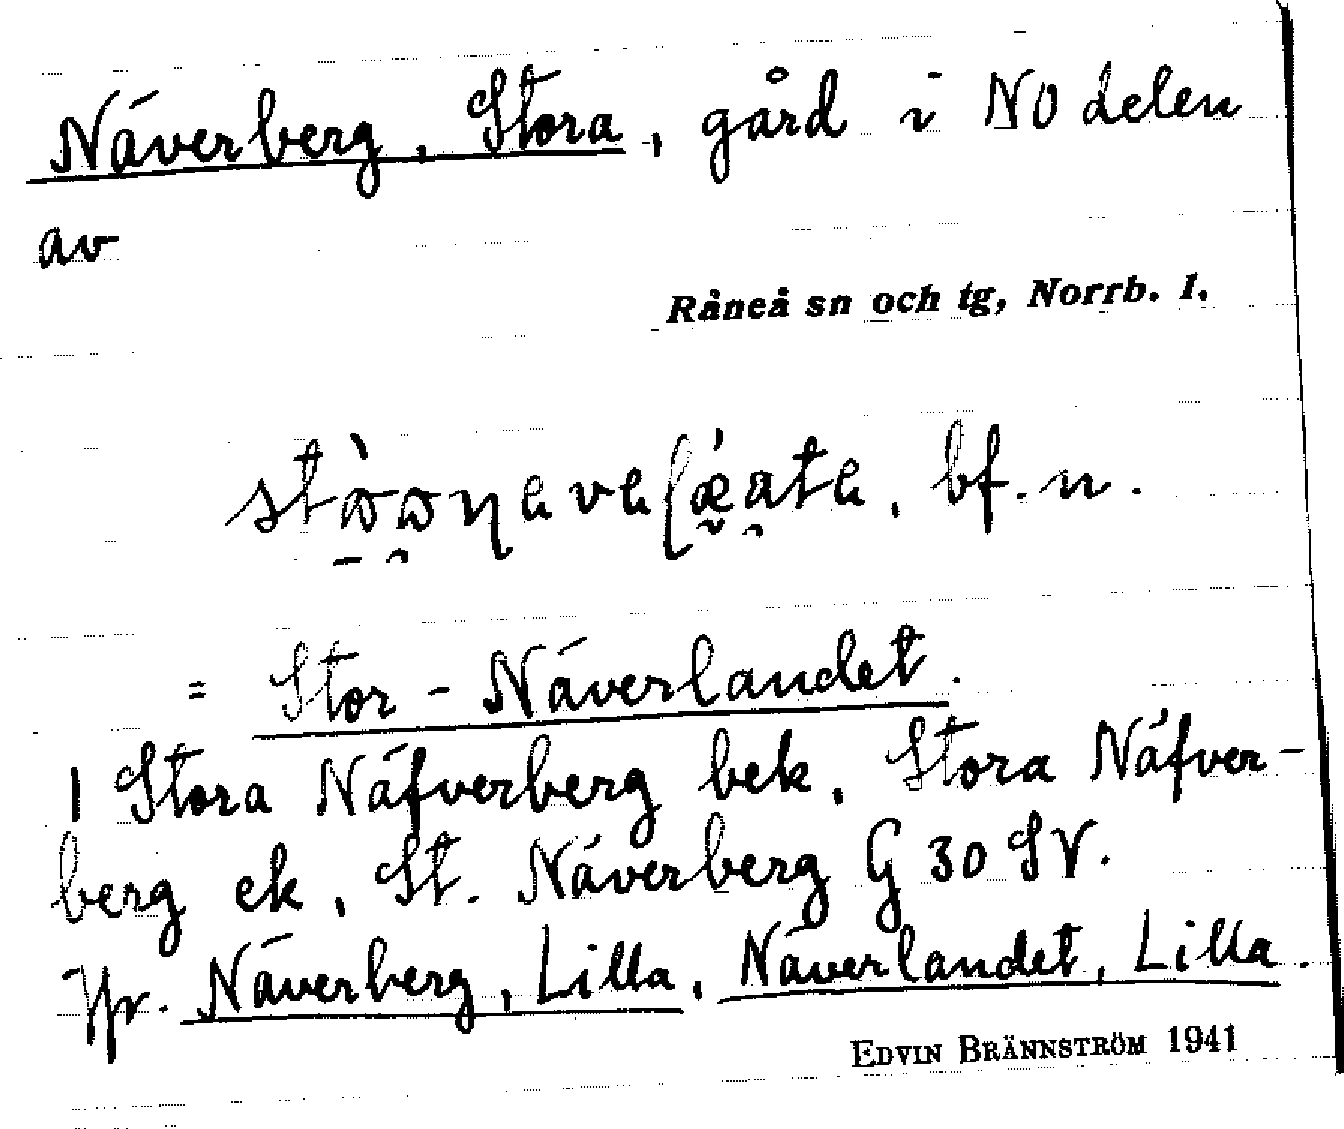 Näverberg, Stora, gård i NO delen
av
Råneå sn och tg, Norrb. l.
bf. n.
= Stor-Näverlandet.
1 Stora Näfverberg bek, Stora Näfver-
berg ek, St. Näverberg G 30 SV.
Jfr. Näverberg, Lilla, Näverlandet, Lilla.
EDVIN BRÄNNSTRÖM 1941